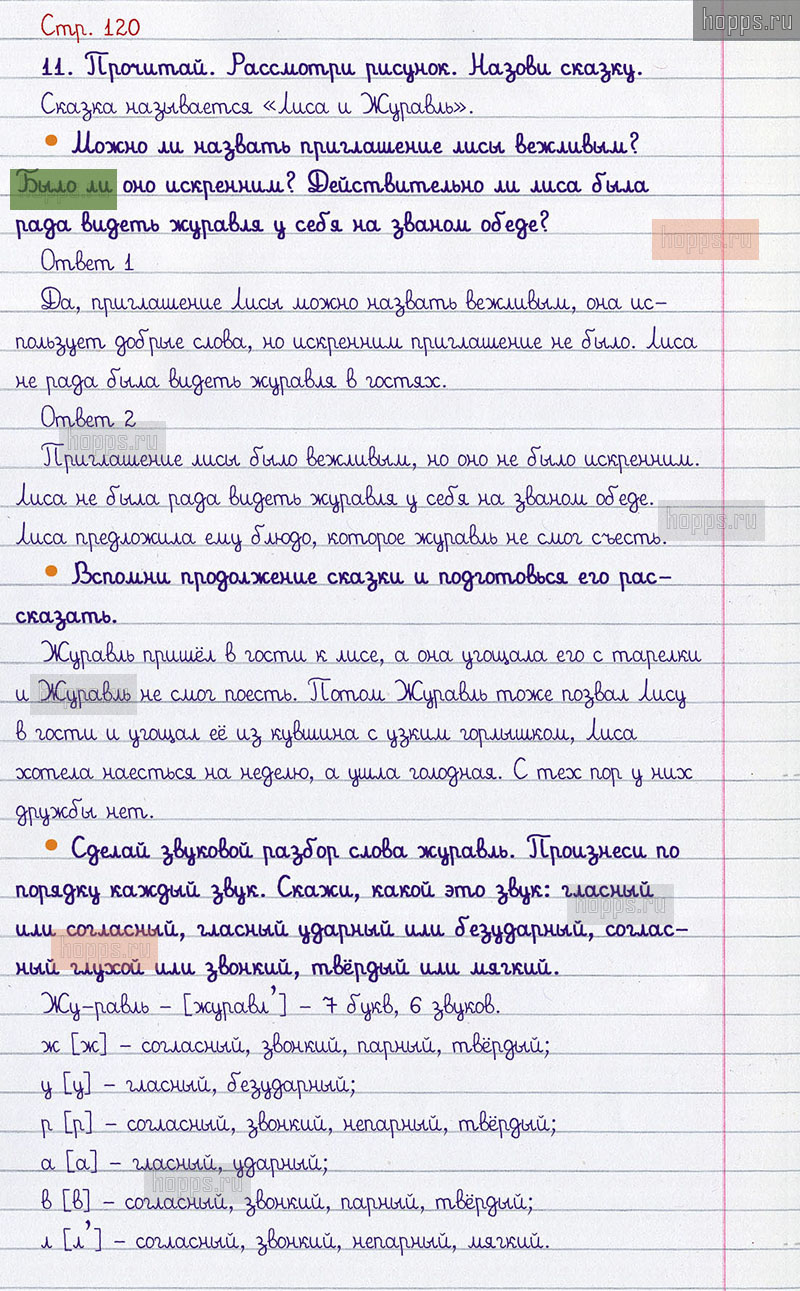 hopps.ru
Стр. 120
11. Прочитай. Рассмотри рисунок. Назови сказку.
Сказка называется «Лиса и Журавль».
• Можно ли назвать приглашение лисы вежливым?
Было ли оно искренним? Действительно ли лиса была
рада видеть журавля у себя на званом обеде?
hopps.ru
Ответ 1
Да, приглашение Лисы можно назвать вежливым, она ис-
пользует добрые слова, но искренним приглашение не было. Лиса
не рада была видеть журавля в гостях.
Ответ 2
hopps.ru
Приглашение лисы было вежливым, но оно не было искренним.
Лиса не была рада видеть журавля у себя на званом обеде.
hopps.ru
Лиса предложила ему блюдо, которое журавль не смог съесть.
• Вспомни продолжение сказки и подготовься его рас-
сказать.
Журавль пришёл в гости к лисе, а она угощала его с тарелки
и Журавль не смог поесть. Потом Журавль тоже позвал Лису
в гости и угощал её из кувшина с узким горлышком, Лиса
хотела наесться на неделю, а ушла голодная. С тех пор у них
дружбы нет.
• Сделай звуковой разбор слова журавль. Произнеси по
порядку каждый звук. Скажи, какой это звук: гласный
hopps.ru
или согласный, гласный ударный или безударный, соглас-
hopps.ru
ный глухой или звонкий, твёрдый или мягкий.
Жу-равль – [журавл’] – 7 букв, 6 звуков.
ж [ж] – согласный, звонкий, парный, твёрдый;
у [у] – гласный, безударный;
р [р] – согласный, звонкий, непарный, твёрдый;
а [а] – гласный, ударный;
hopps.ru
в [в] – согласный, звонкий, парный, твёрдый;
л [л’] – согласный, звонкий, непарный, мягкий.